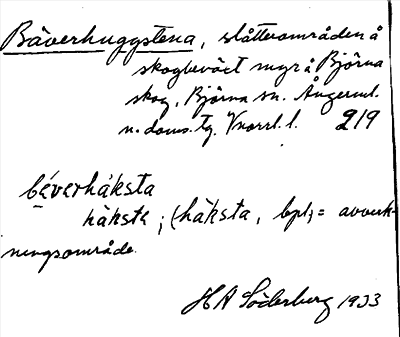 Bäverhuggstena, slåtterområden å
skogbeväxt myr å Björna
skog, Björna sn. Ångerml.
n. doms. tg. Vnorrl. l. 219
béverháksta
hákste; (håksta, bpl; = avverk-
ningsområde.
H A Söderberg 1933